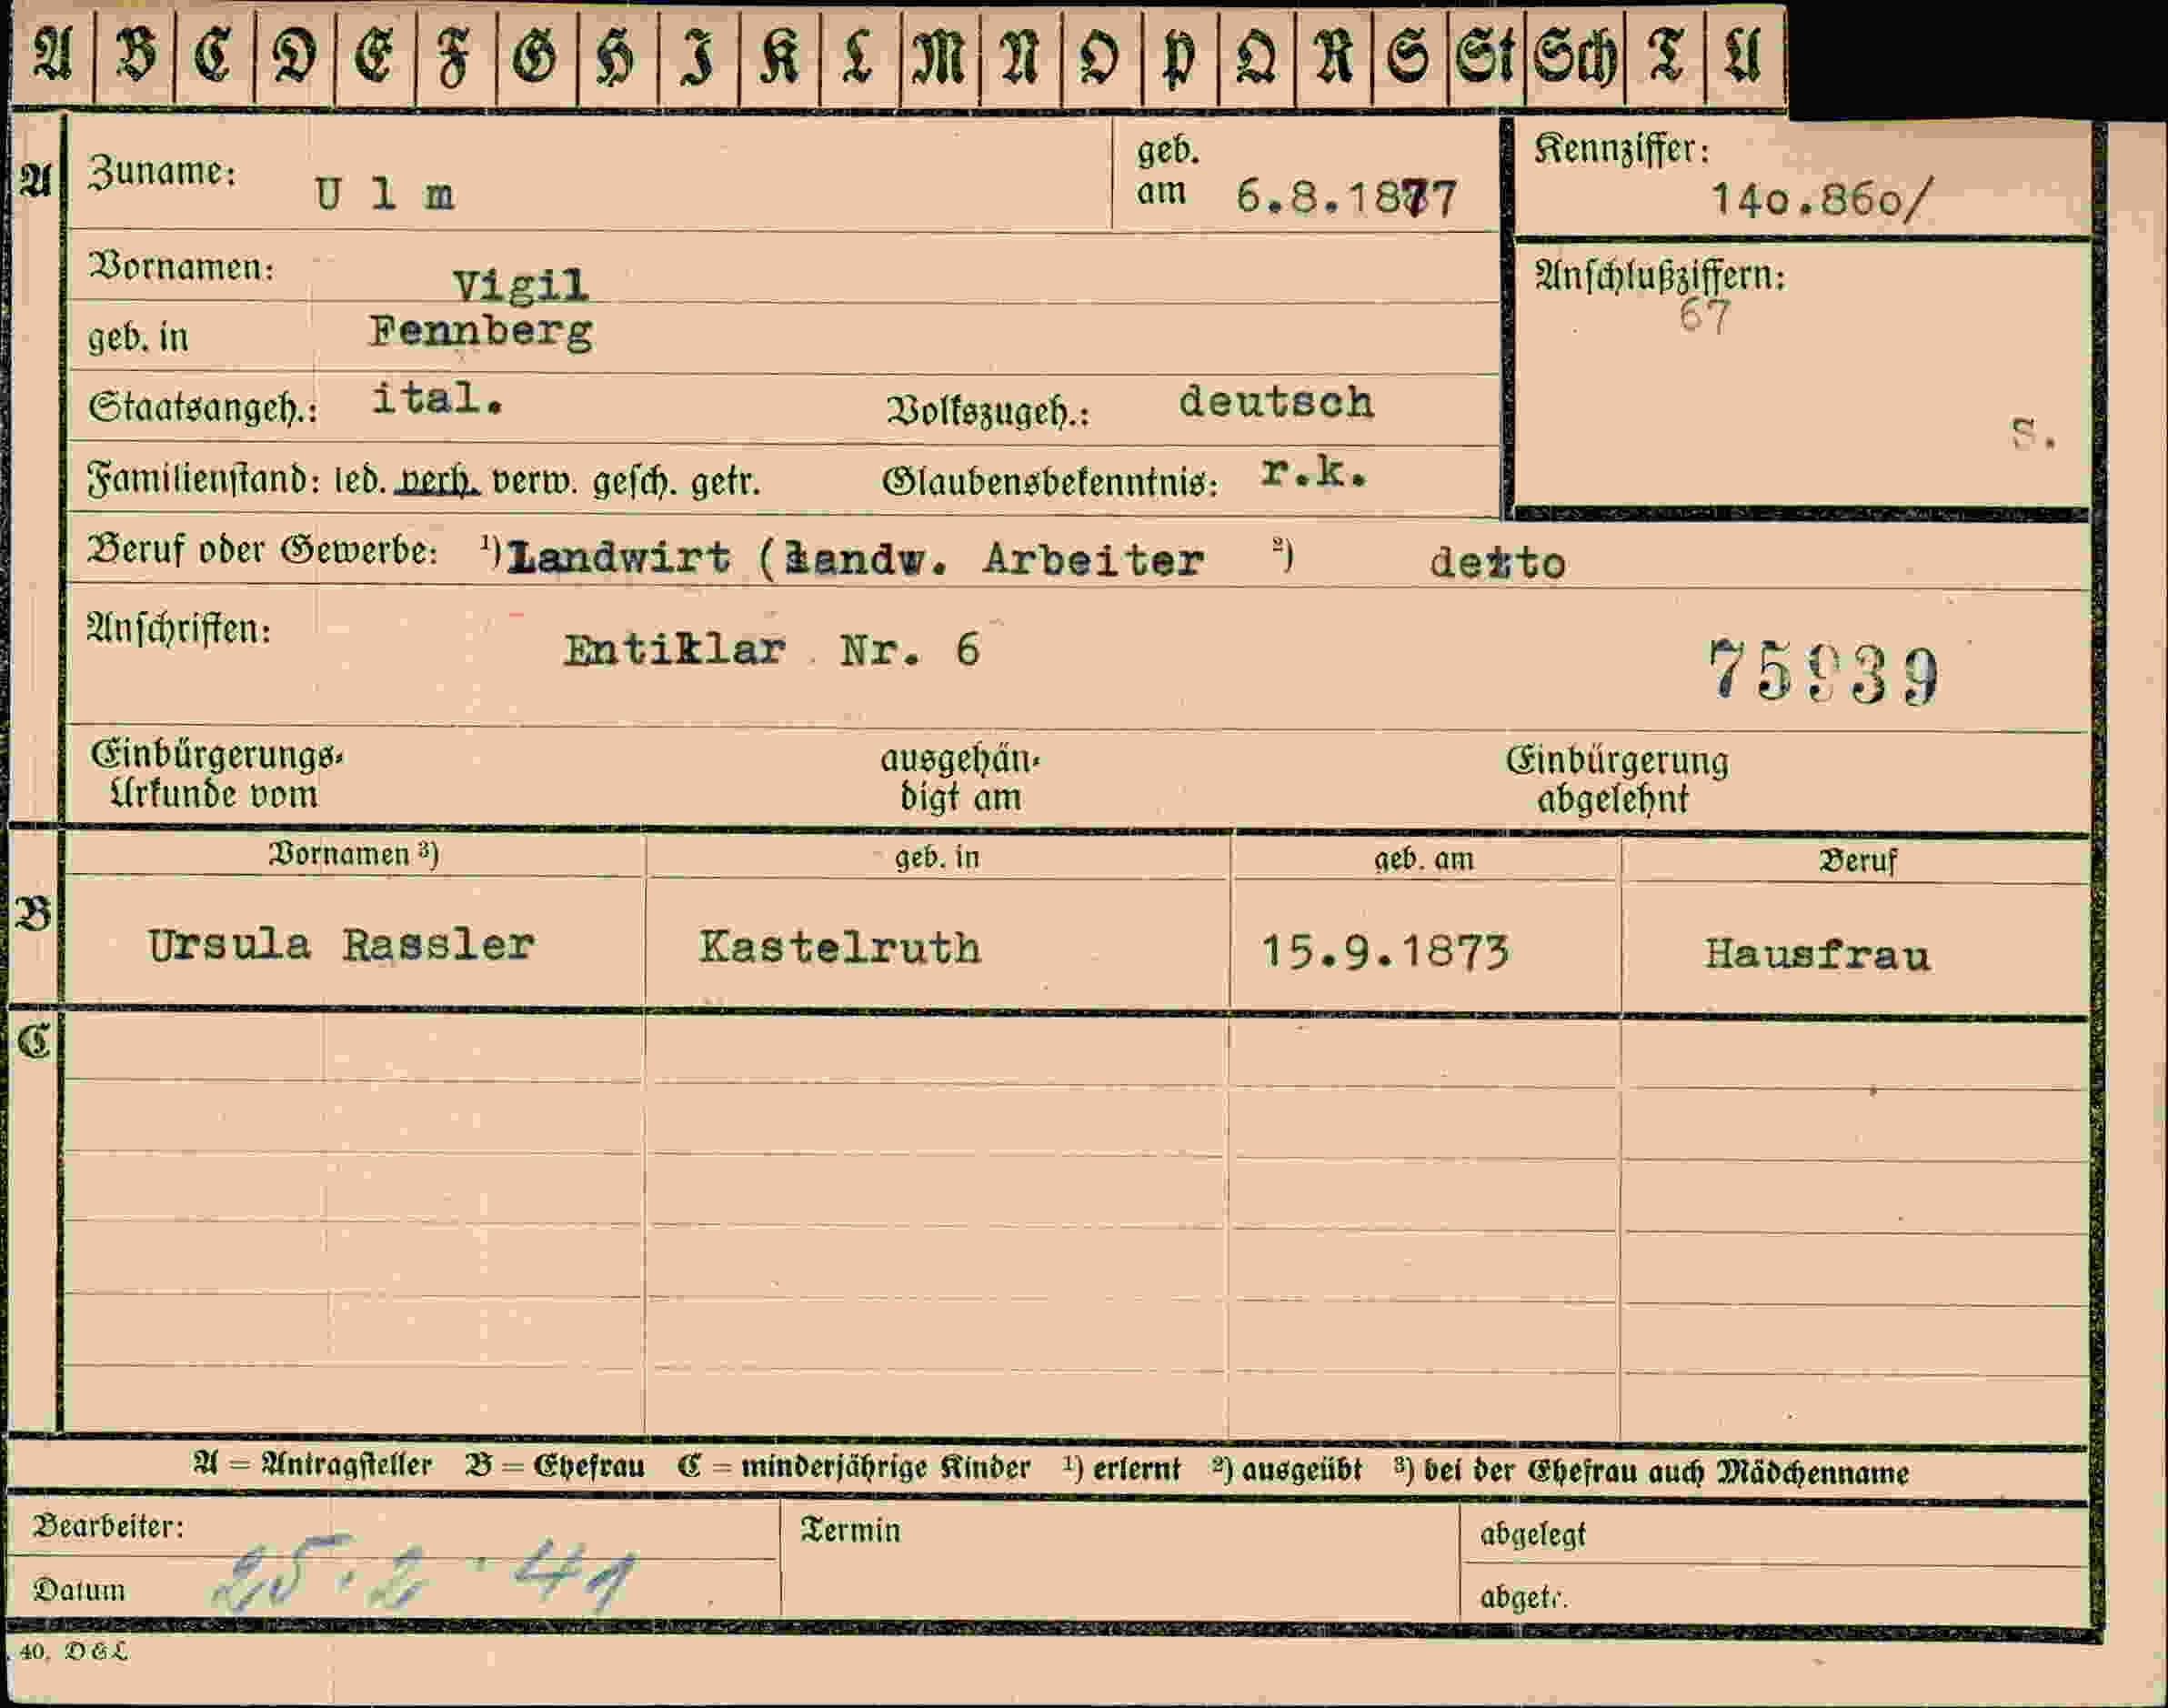 A B C D E F G H I K L M N O P Q R S St Sch T U
A Zuname: Ulm geb. am 6.8.1877 Kennziffer: 140.860/
Vornamen: Vigil Anschlußziffern: 67
geb. in Fennberg
Staatsangeh.: ital. Volkszugeh.: deutsch S.
Familienstand: led. verh. verw. gesch. getr. Glaubensbekenntnis: r.k.
Beruf oder Gewerbe: ¹) Landwirt (landw. Arbeiter ²) detto
Anschriften: Entiklar Nr. 6 75939
Einbürgerungs- ausgehän- Einbürgerung
Urkunde vom digt am abgelehnt
Vornamen ³) geb. in geb. am Beruf
B Ursula Rassler Kastelruth 15.9.1873 Hausfrau
C
A = Antragsteller B = Ehefrau C = minderjährige Kinder ¹) erlernt ²) ausgeübt ³) bei der Ehefrau auch Mädchenname
Bearbeiter: Termin abgelegt
Datum 25.2.41 abgetr.
40. D&L